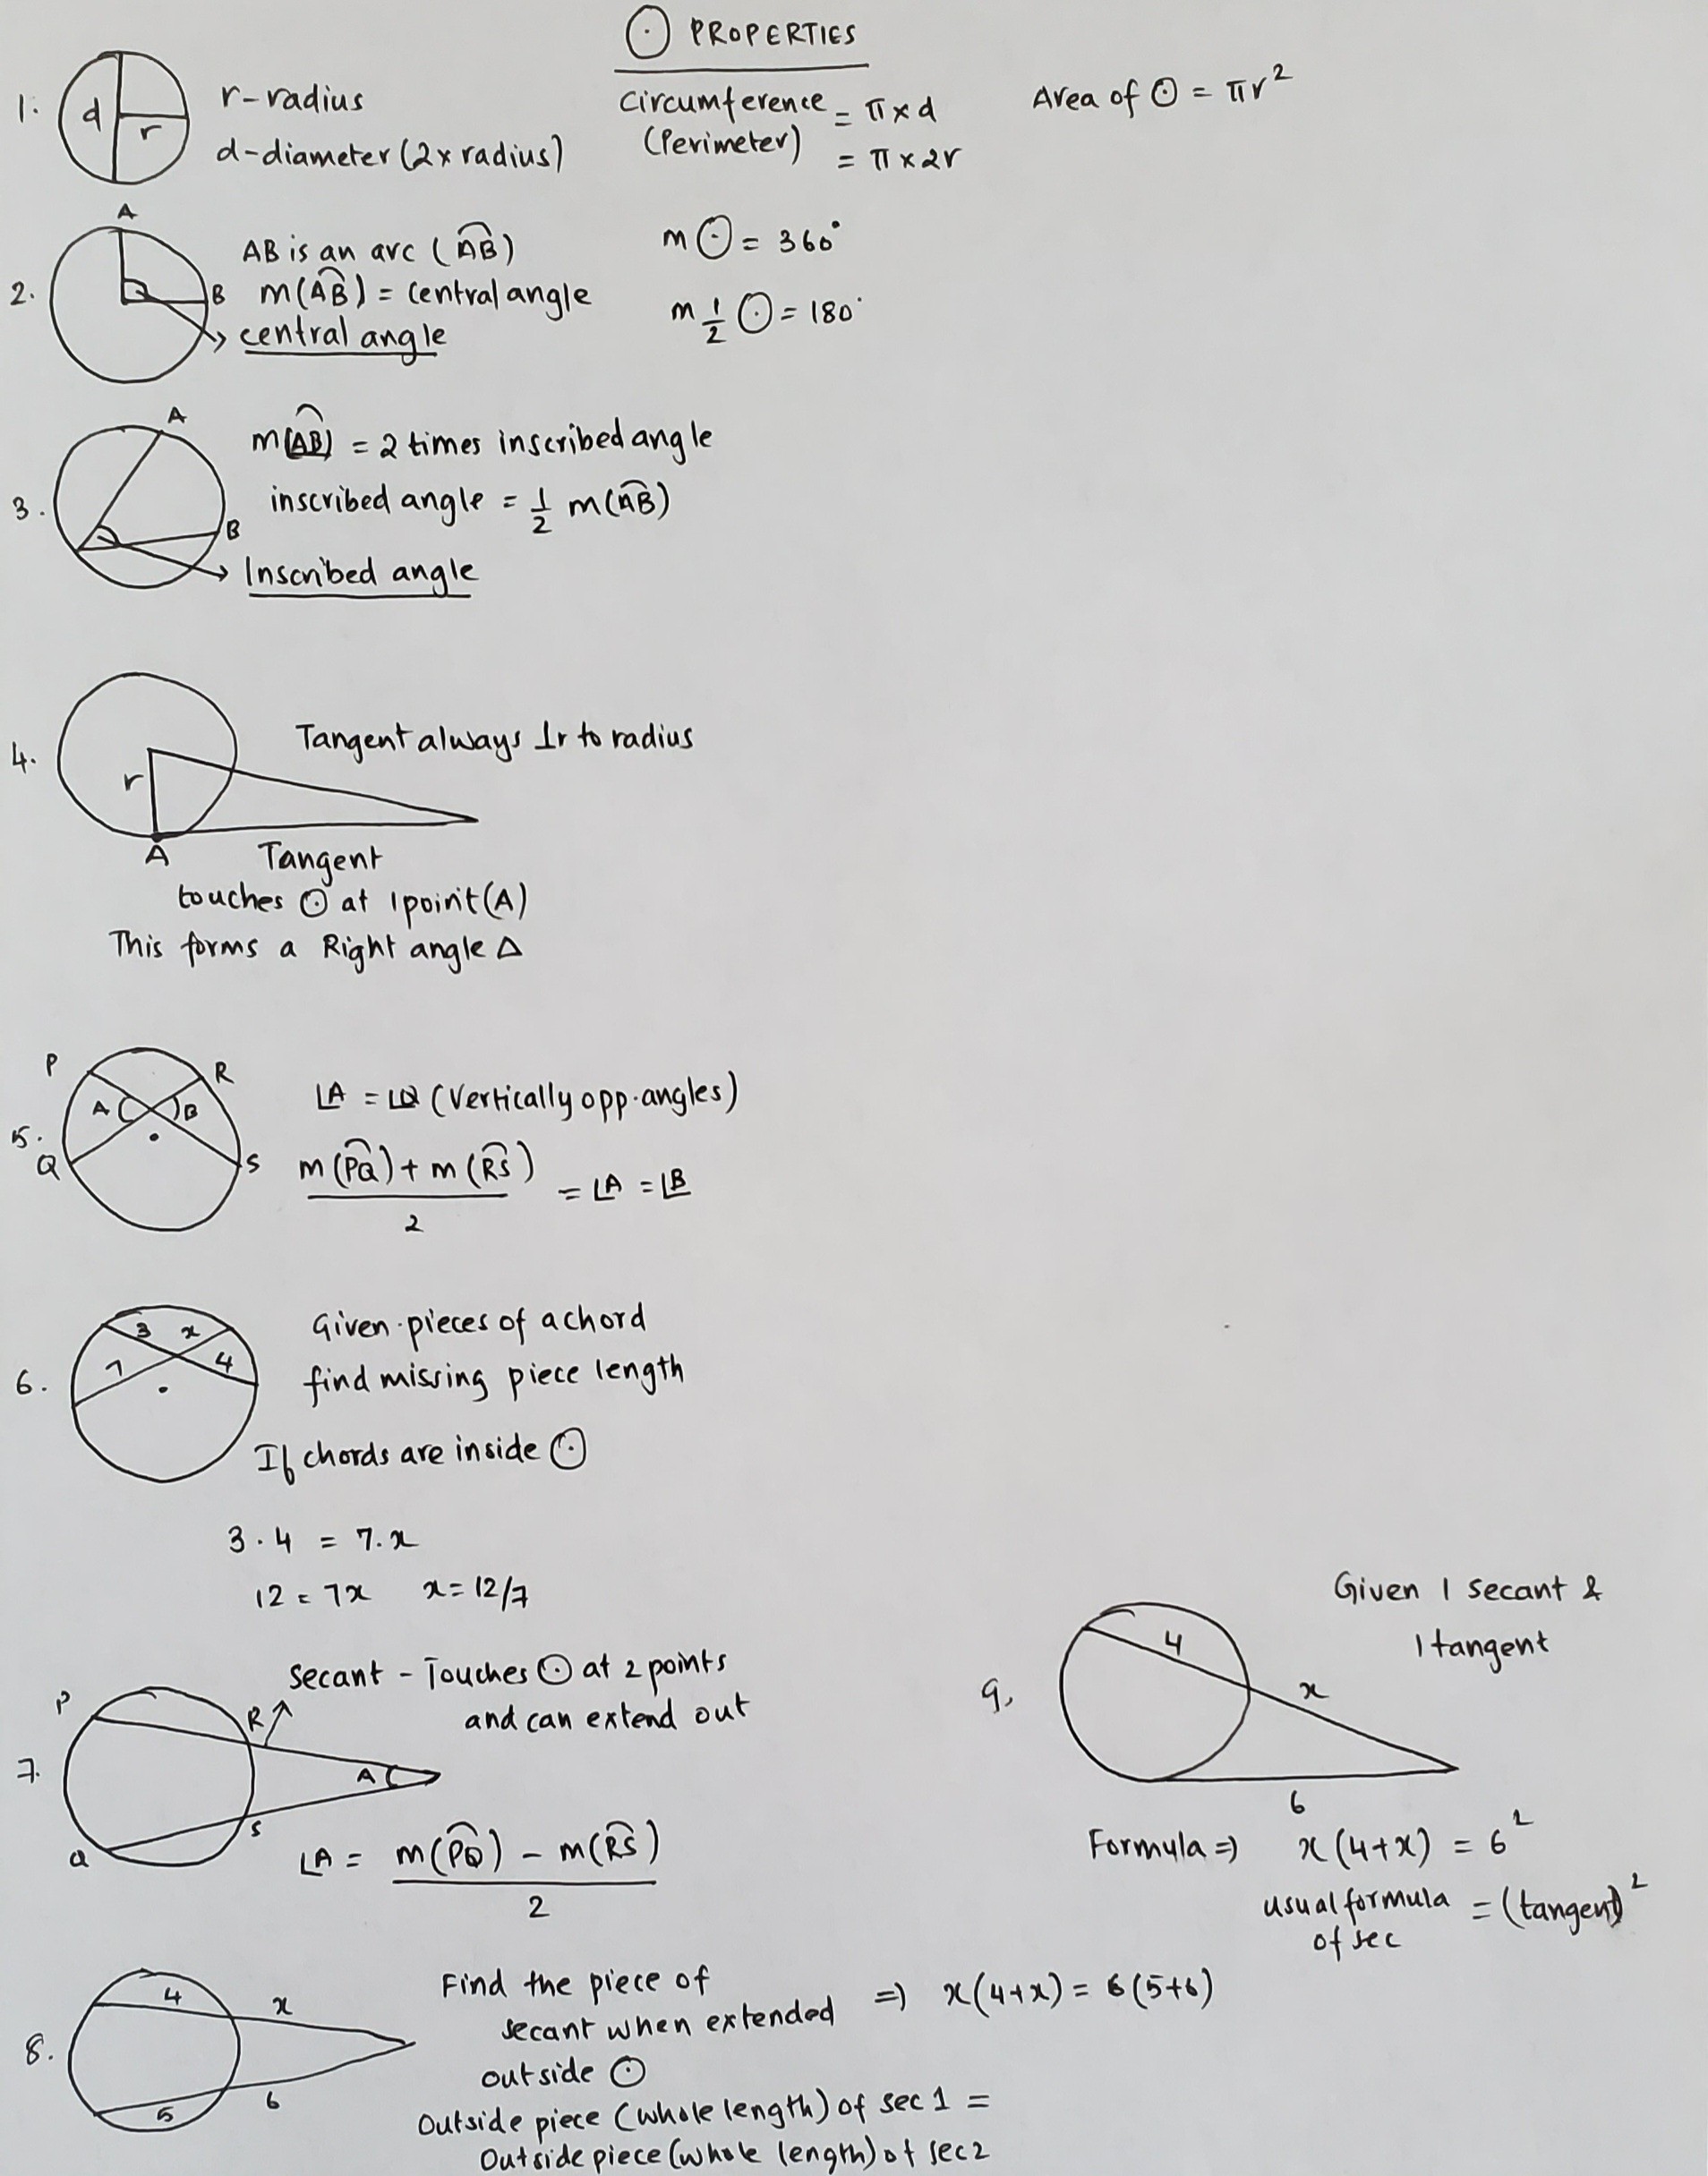 ⊙ PROPERTIES
1. d r
r-radius
d-diameter (2x radius)
Circumference = π x d
(Perimeter) = π x 2r
Area of ⊙ = πr²
2. A B
AB is an arc (A͡B)
m(A͡B) = central angle
central angle
m⊙ = 360°
m ½ ⊙ = 180°
3. A B
m(A͡B) = 2 times inscribed angle
inscribed angle = ½ m(A͡B)
Inscribed angle
4. r A
Tangent always ⊥r to radius
Tangent
touches ⊙ at 1 point (A)
This forms a Right angle Δ
5. P R A B Q S
∠A = ∠ (Vertically opp. angles)
m(P͡Q) + m(R͡S) / 2 = ∠A = ∠B
6. 3 x 7 4
Given pieces of a chord
find missing piece length
If chords are inside ⊙
3 . 4 = 7. x
12 = 7x x = 12/7
7. P R A Q S
Secant - Touches ⊙ at 2 points
and can extend out
∠A = m(P͡Q) - m(R͡S) / 2
8. 4 x 5 6
Find the piece of
secant when extended
outside ⊙
=> x(4+x) = 6(5+6)
Outside piece (whole length) of sec 1 =
Outside piece (whole length) of sec 2
9. 4 x 6
Given 1 secant &
1 tangent
Formula => x(4+x) = 6²
usual formula = (tangent)²
of sec